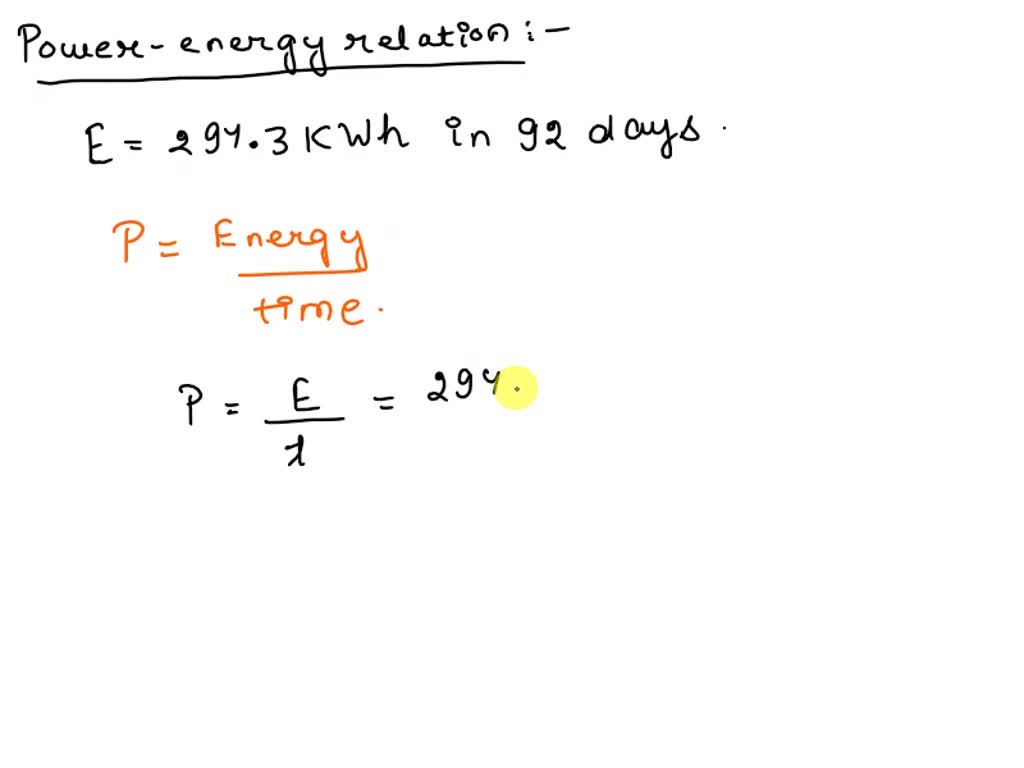 Power-energy relation:-
E = 294.3 KWh in 92 days.
P = Energy
time.
P = E = 294.
t